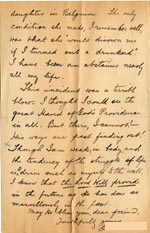 daughter in Belgium. The only
condition she made, I remember well
was that she would disown me
if I turned out a drunkard!
I have been an abstainer nearly
all my life.
This incident was a terrible
blow. I thought I could see the
great Hand of God's Providence
in all. But there I cannot.
His ways are past finding out!
Though I am weak in body and
the tendency of the struggle of life
is driven such as myself to the wall,
I know that the Lord will provide
in the future as He has done so
marvellously in the past.
May He bless you, dear friend.
Yours faithfully